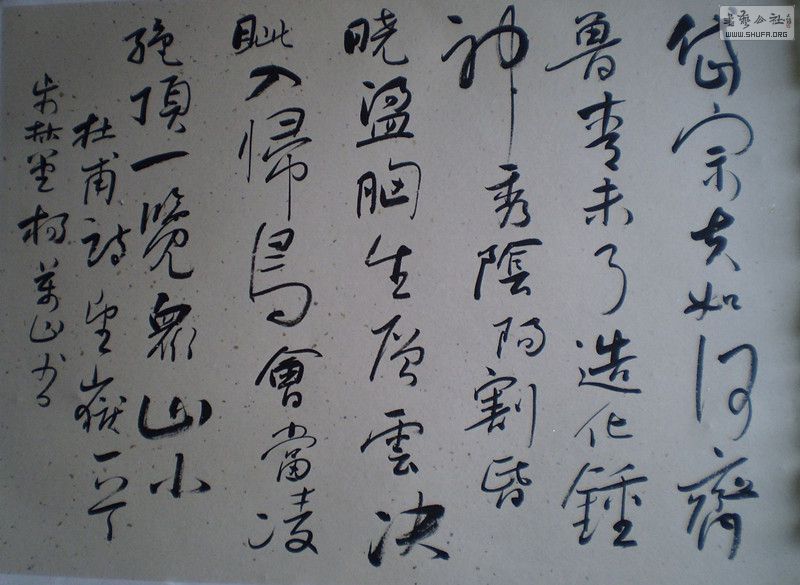 岱宗夫如何齊
魯青未了造化鍾
神秀陰陽割昏
曉盪胸生層雲决
眦入歸鳥會當凌
絕頂一覽眾山小
杜甫詩望嶽一首
楊萬山書
書藝公社
WWW.SHUFA.ORG